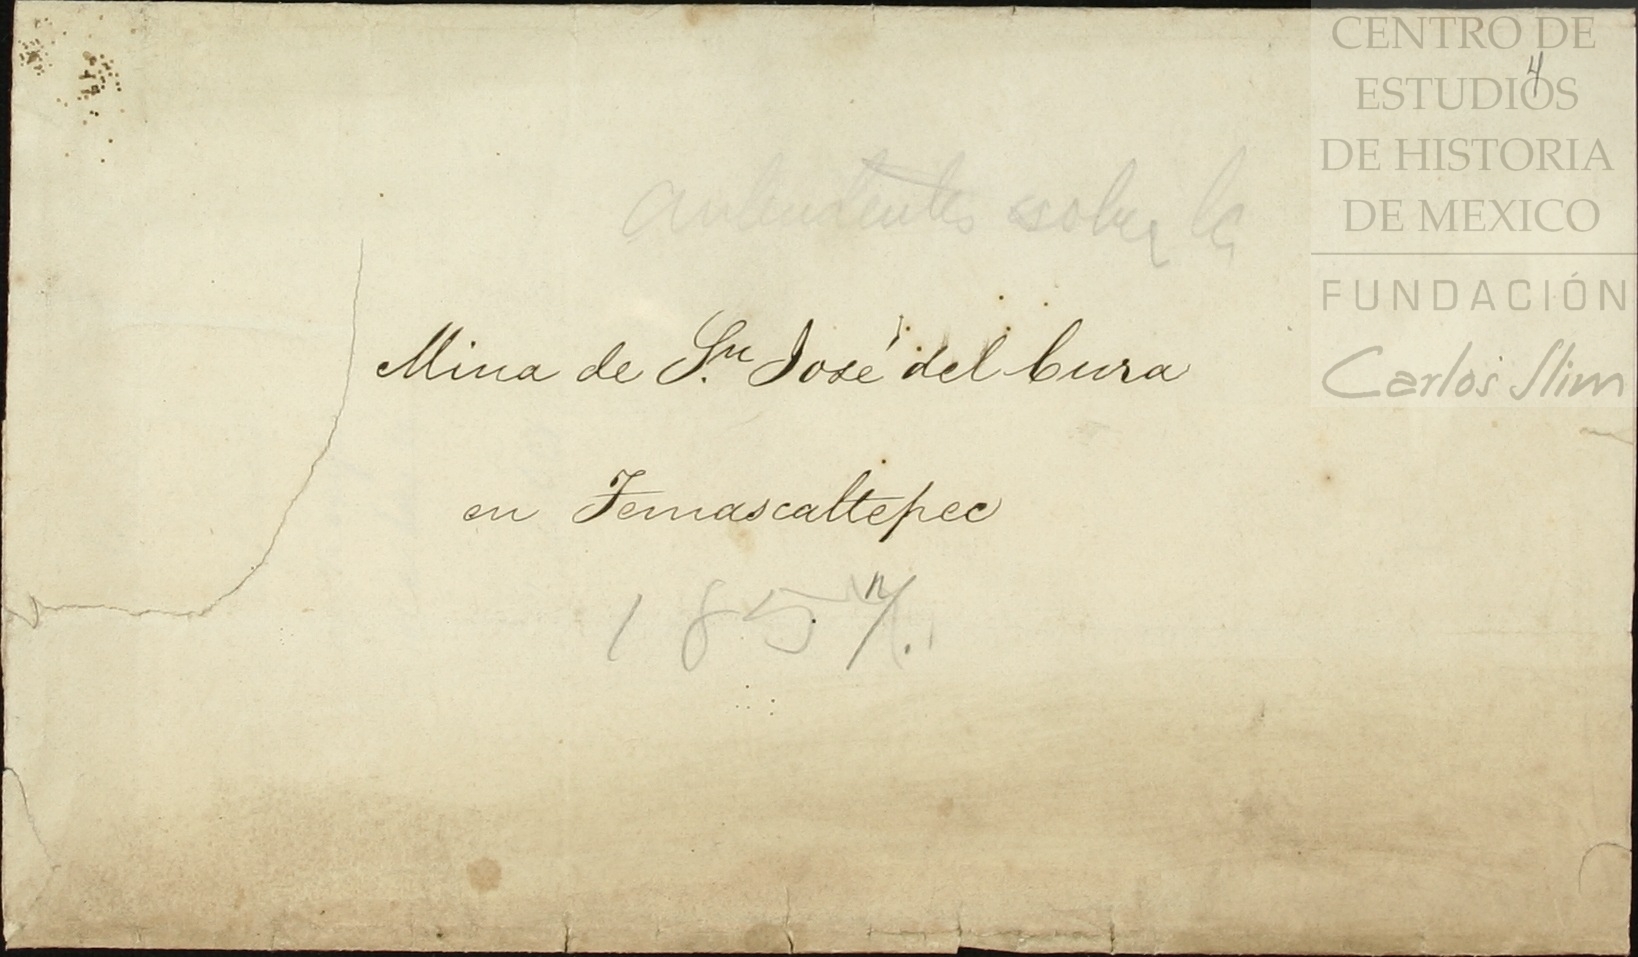 CENTRO DE
ESTUDIOS
DE HISTORIA
DE MEXICO
FUNDACIÓN
Carlos Slim
4
antecedentes sobre la
Mina de Sn. José del Cura
en Temascaltepec
1857.